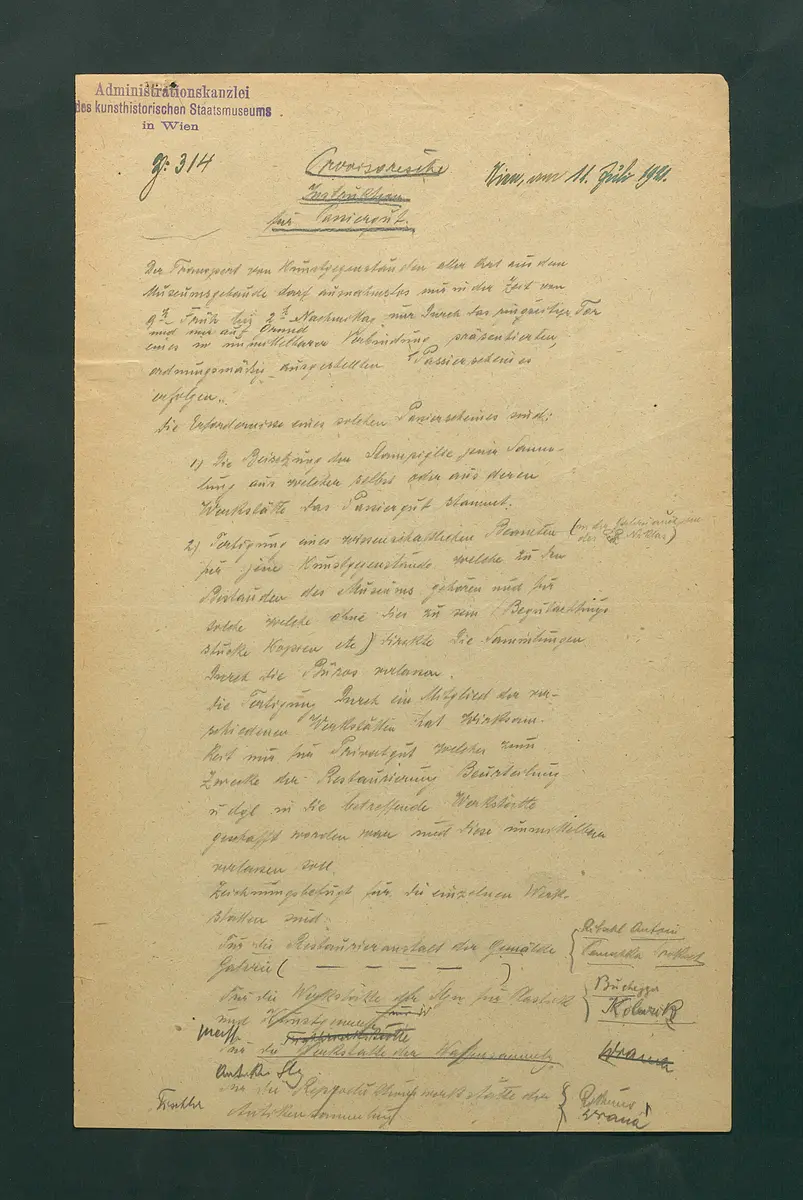 Administrationskanzlei
des kunsthistorischen Staatsmuseums
in Wien
Z. 314
Provisorische
Wien, am 11. Juli 1921.
Instruktion
für Passiergut.
Der Transport von Kunstgegenständen aller Art aus dem
Museumsgebäude darf ausnahmslos nur in der Zeit von
9 h Früh bis 2 h Nachmittag nur durch das ringseitige Tor
und nur auf Grund
eines in unmittelbarer Verbindung präsentierten,
ordnungsmäßig ausgestellten Passierscheines
erfolgen.
Die Erfordernisse eines solchen Passierscheines sind:
1) Die Beisetzung der Stampiglie jener Samm-
lung aus welcher selbst oder aus deren
Werkstätte das Passiergut stammt.
2) Fertigung eines wissenschaftlichen Beamten (in der
der Niklas)
für jene Kunstgegenstände welche zu den
Beständen des Museums gehören und für
solche welche ohne dies zu sein (Begutachtungs
stücke Kopien etc) direkte die Sammlungen
durch die Büros verlassen.
Die Fertigung durch ein Mitglied der ver-
schiedenen Werkstätten hat Wirksam-
keit nur für Privatgut welches zum
Zwecke der Restaurierung Beurteilung
u dgl in die betreffende Werkstätte
geschafft worden war und diese unmittelbar
verlassen soll.
Zeichnungsbefugt für die einzelnen Werk-
stätten sind:
Für die Restaurieranstalt der Gemälde
Galerie ( — — — — )
Anton
Für die Werkstätte der Slg für Plastik
und Kunstgewerbe
Buchegger
Für die Werkstätte der Waffensammlg
Wrana
Antike Slg
Für die Werkstätte der
Antikensammlung
Wrana